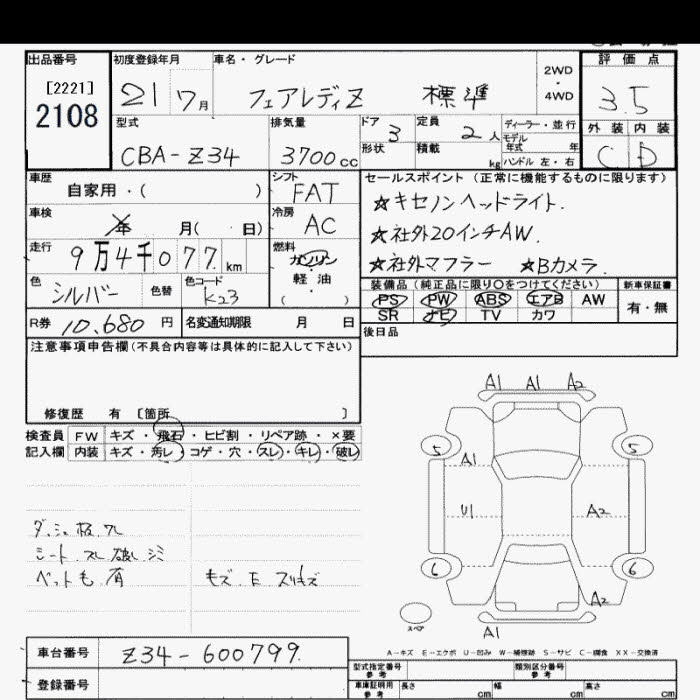 出品番号 初度登録年月 車名・グレード 評価点
[2221]
2108
21 7月 フェアレディZ 標準 2WD・4WD 3.5
型式 排気量 ドア 定員 ディーラー・並行 外装 内装
CBA-Z34 3700cc 3 2人 モデル年式 年 C D
形状 積載 kg ハンドル 左・右
車歴 シフト セールスポイント (正常に機能するものに限ります)
自家用・( ) FAT ☆キセノンヘッドライト.
車検 冷房
年 月( 日) AC ☆社外20インチAW.
走行 燃料
9万4千077km ガソリン・軽油・( ) ☆社外マフラー ☆Bカメラ.
色 色替 色コード 装備品 (純正品に限り○をつけてください) 新車保証書
シルバー K23 PS PW ABS エアB AW 有・無
SR ナビ TV カワ
R券 10,680円 名変通知期限 月 日 後日品
注意事項申告欄(不具合内容等は具体的に記入して下さい)
修復歴 有 [箇所 ]
検査員 FW キズ・飛石・ヒビ割・リペア跡・×要
記入欄 内装 キズ・汚レ・コゲ・穴・スレ・キレ・破レ
A1 A1 A2
5 5
A1
U1 A2
6 6
A2
A1
シート スレ 破レ シミ
ペットも 有
スペア
A-キズ E-エクボ U-凹み W-補修跡 S-サビ C-腐食 XX-交換済
車台番号 Z34-600799
登録番号
型式指定番号 参考 類別区分番号 参考
車庫証明用 参考 長さ cm 幅 cm 高さ cm